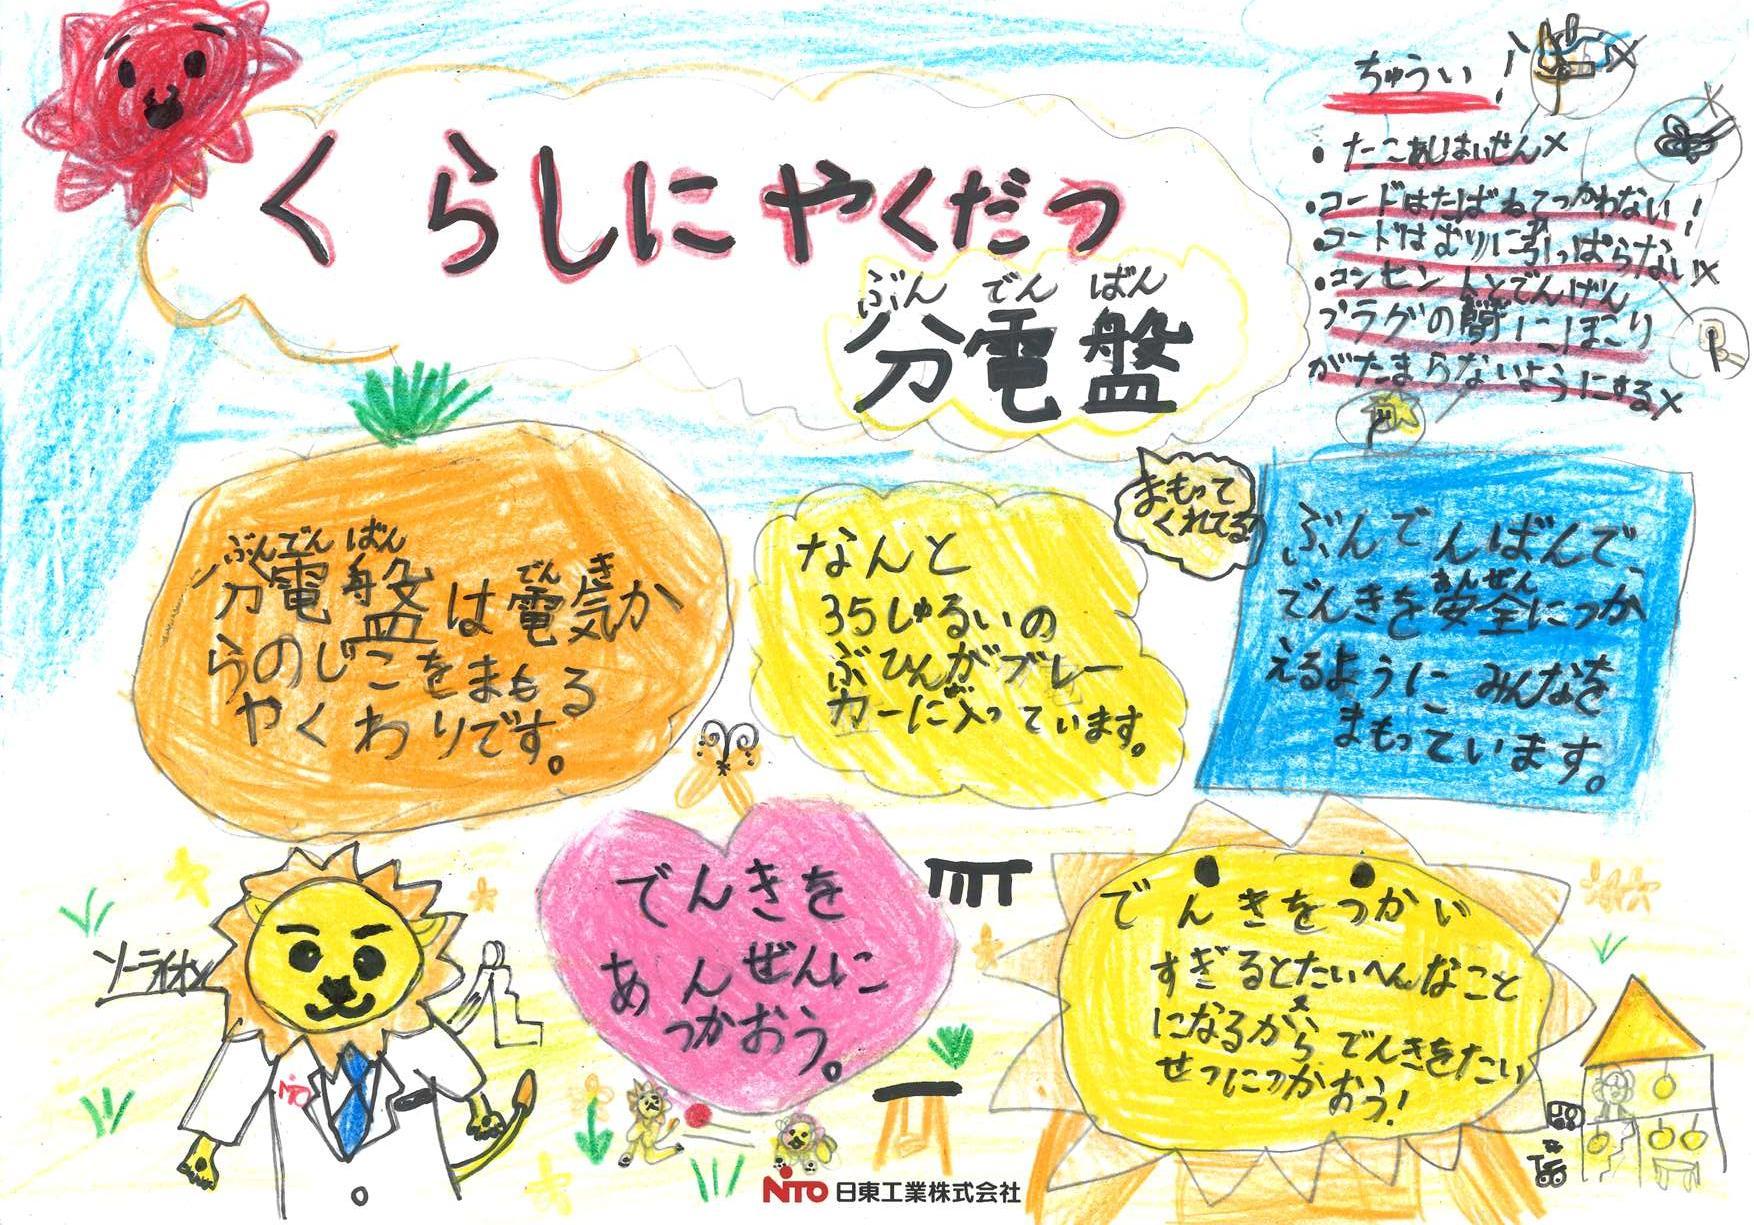 くらしにやくだつ
ぶんでんばん
分電盤
ちゅうい!
・たこあしはいせん×
・コードはたばねてつかわない!
・コードはむりに引っぱらない×
・コンセントとでんげん
プラグの間にほこり
がたまらないようにする×
ぶんでんばん でんき
分電盤は電気か
らのじこをまもる
やくわりです。
なんと
35しゅるいの
ぶひんがブレー
カーに入っています。
まもって
くれてる!
ぶんでんばんで、
あんぜん
でんきを安全につか
えるように みんなを
まもっています。
ソーライオン
NTO
でんきを
あんぜんに
つかおう。
でんきをつかい
すぎるとたいへんなこと
になるから でんきをたい
せつにつかおう!
NITO 日東工業株式会社